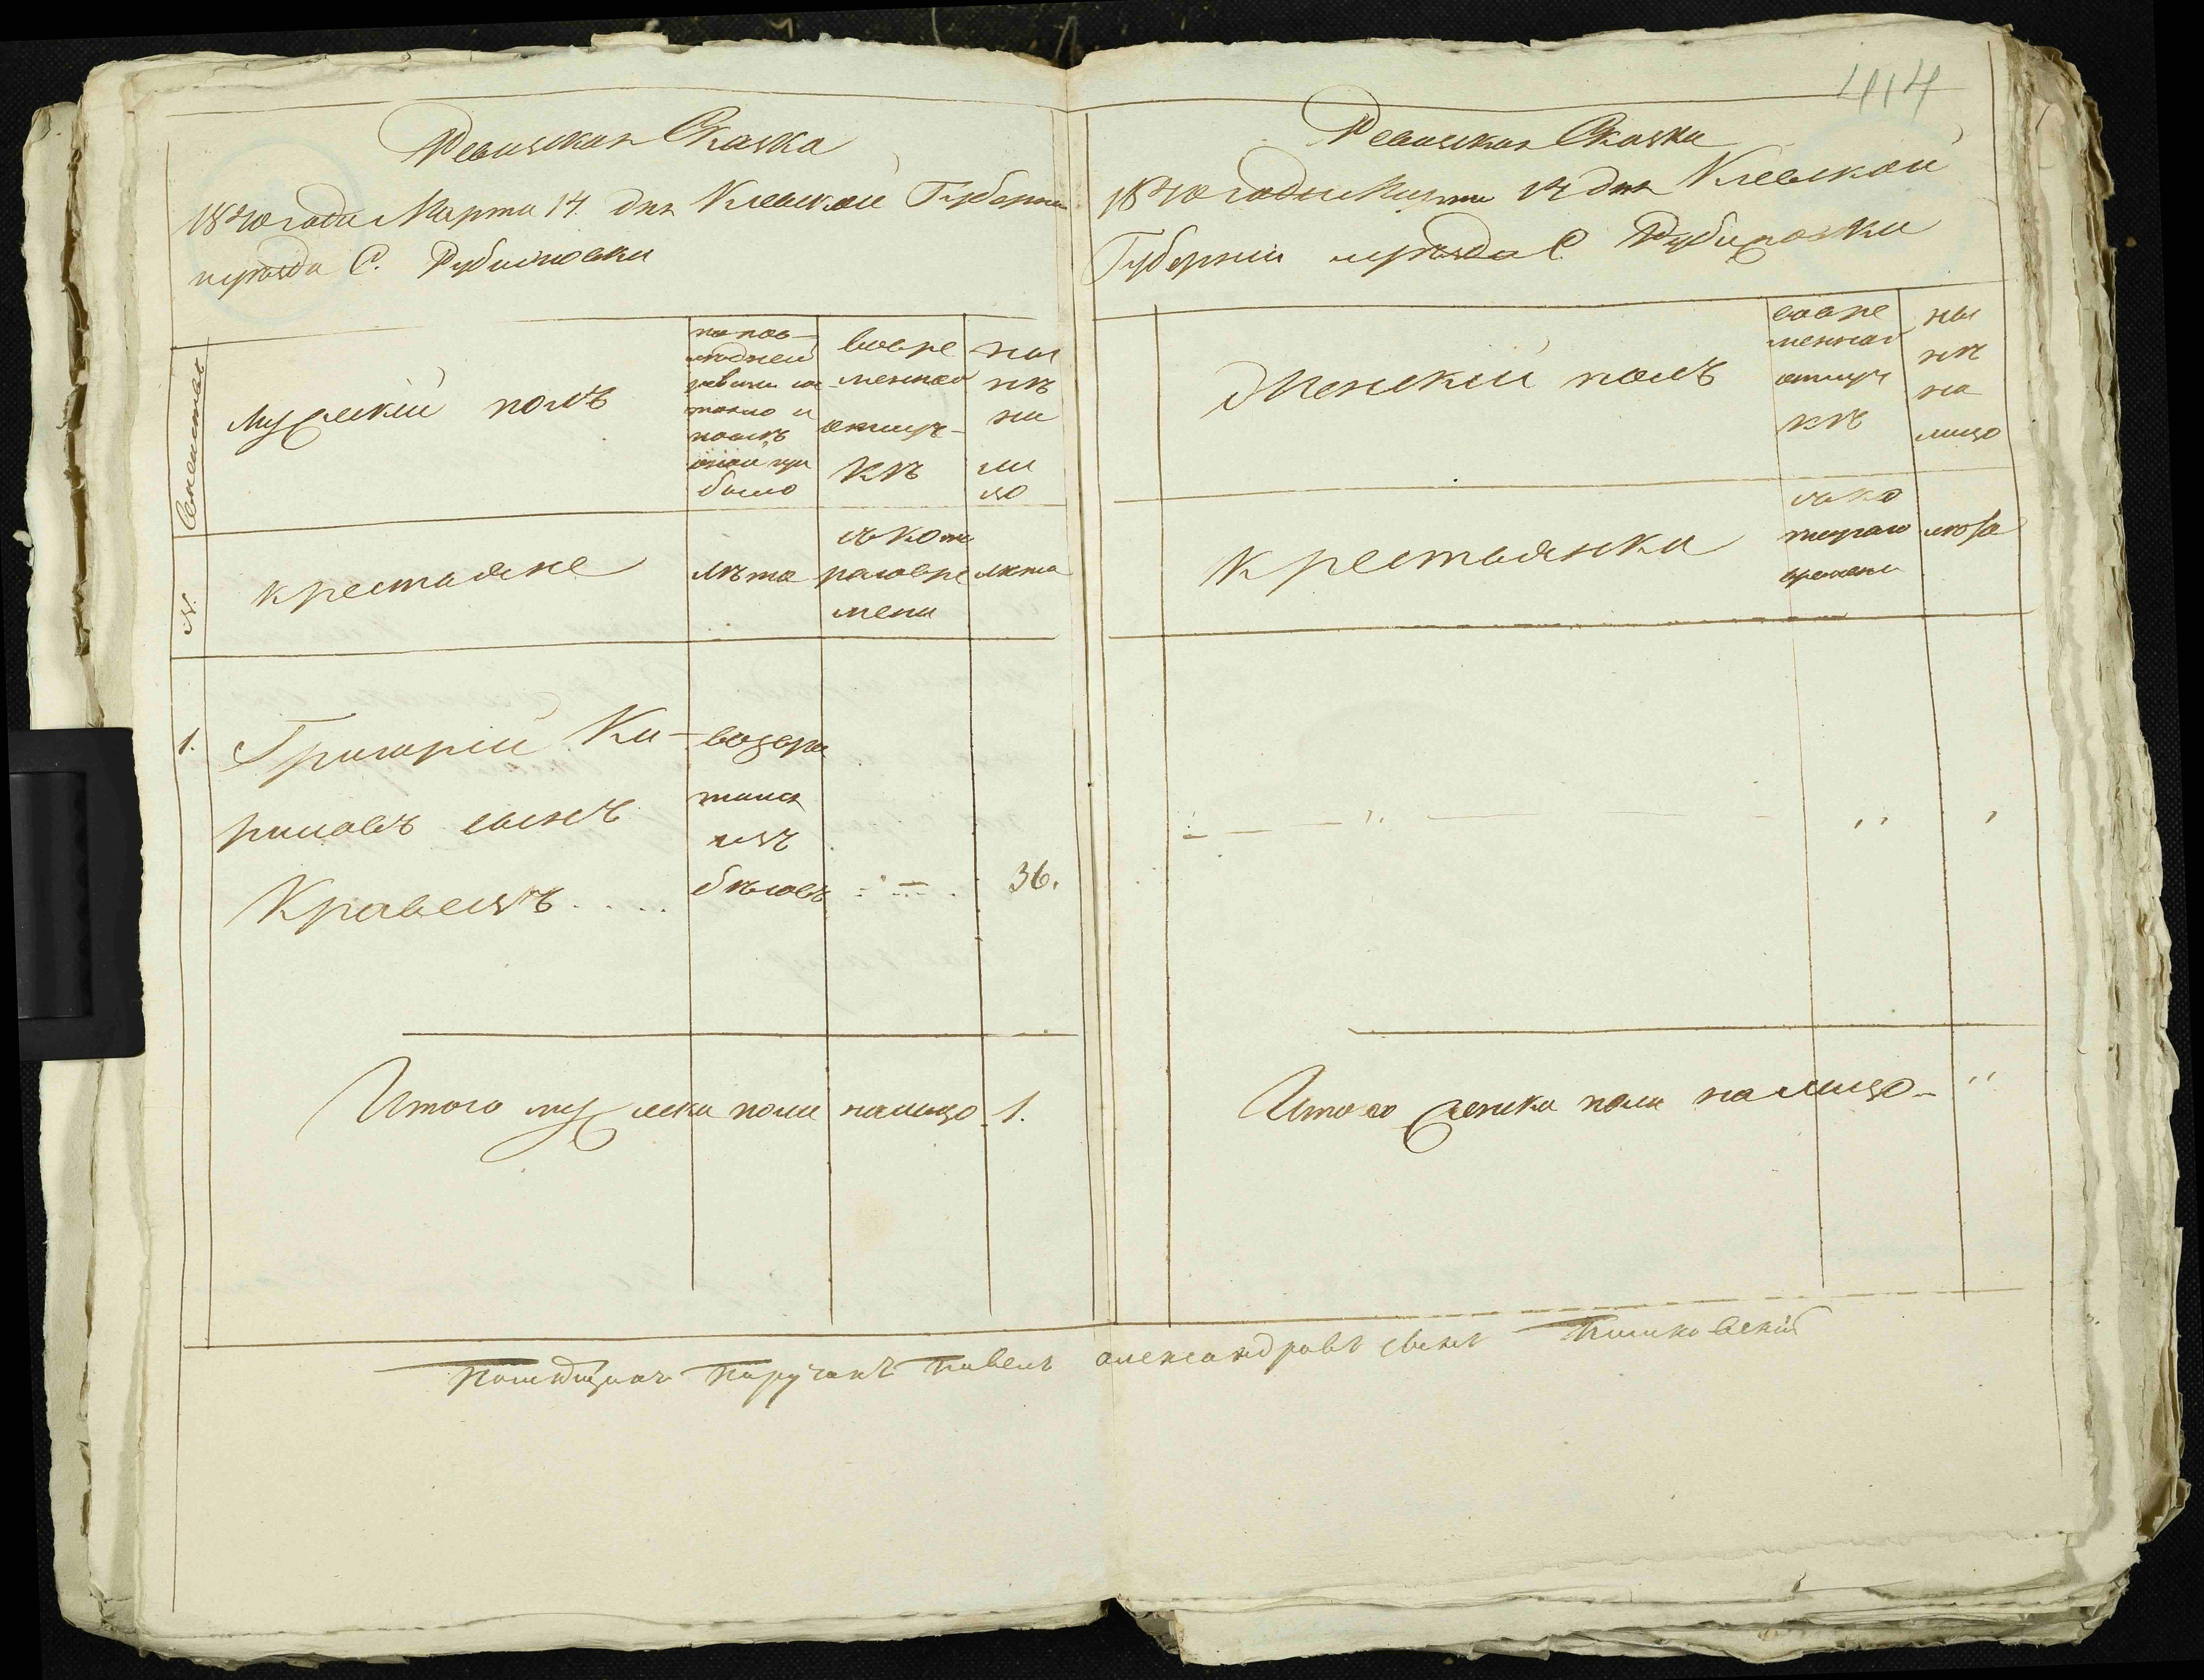 414
Ревизская Сказка
1840 года Марта 14. дня Киевской Губернии
уезда С. Рубченовки
Семействъ
№.
Мужескій полъ
по пос-
ледней
ревизіи со
стояло и
послѣ
оной при
было
вовре
менной
отлуч-
кѣ
ны
нѣ
на
ли
цо
крестьяне
лѣта
съ кото
раго вре
мени
лѣта
1. Григорій Ки-
риловъ сынъ
Кравецъ . . . .
возвра
тился
изъ
бѣговъ
36.
Итого мужеска пола налицо 1.
Ревизская Сказка
1840 года Марта 14 дня Киевской
Губерніи уезда С. Рубченовки
Женскій полъ
вовре
менной
отлуч
кѣ
ны
нѣ
на
лицо
Крестьянки
съ ко
тораго
времени
лѣта
Итого женска пола налицо - "
Помещикъ Поручикъ Павелъ Александровъ сынъ